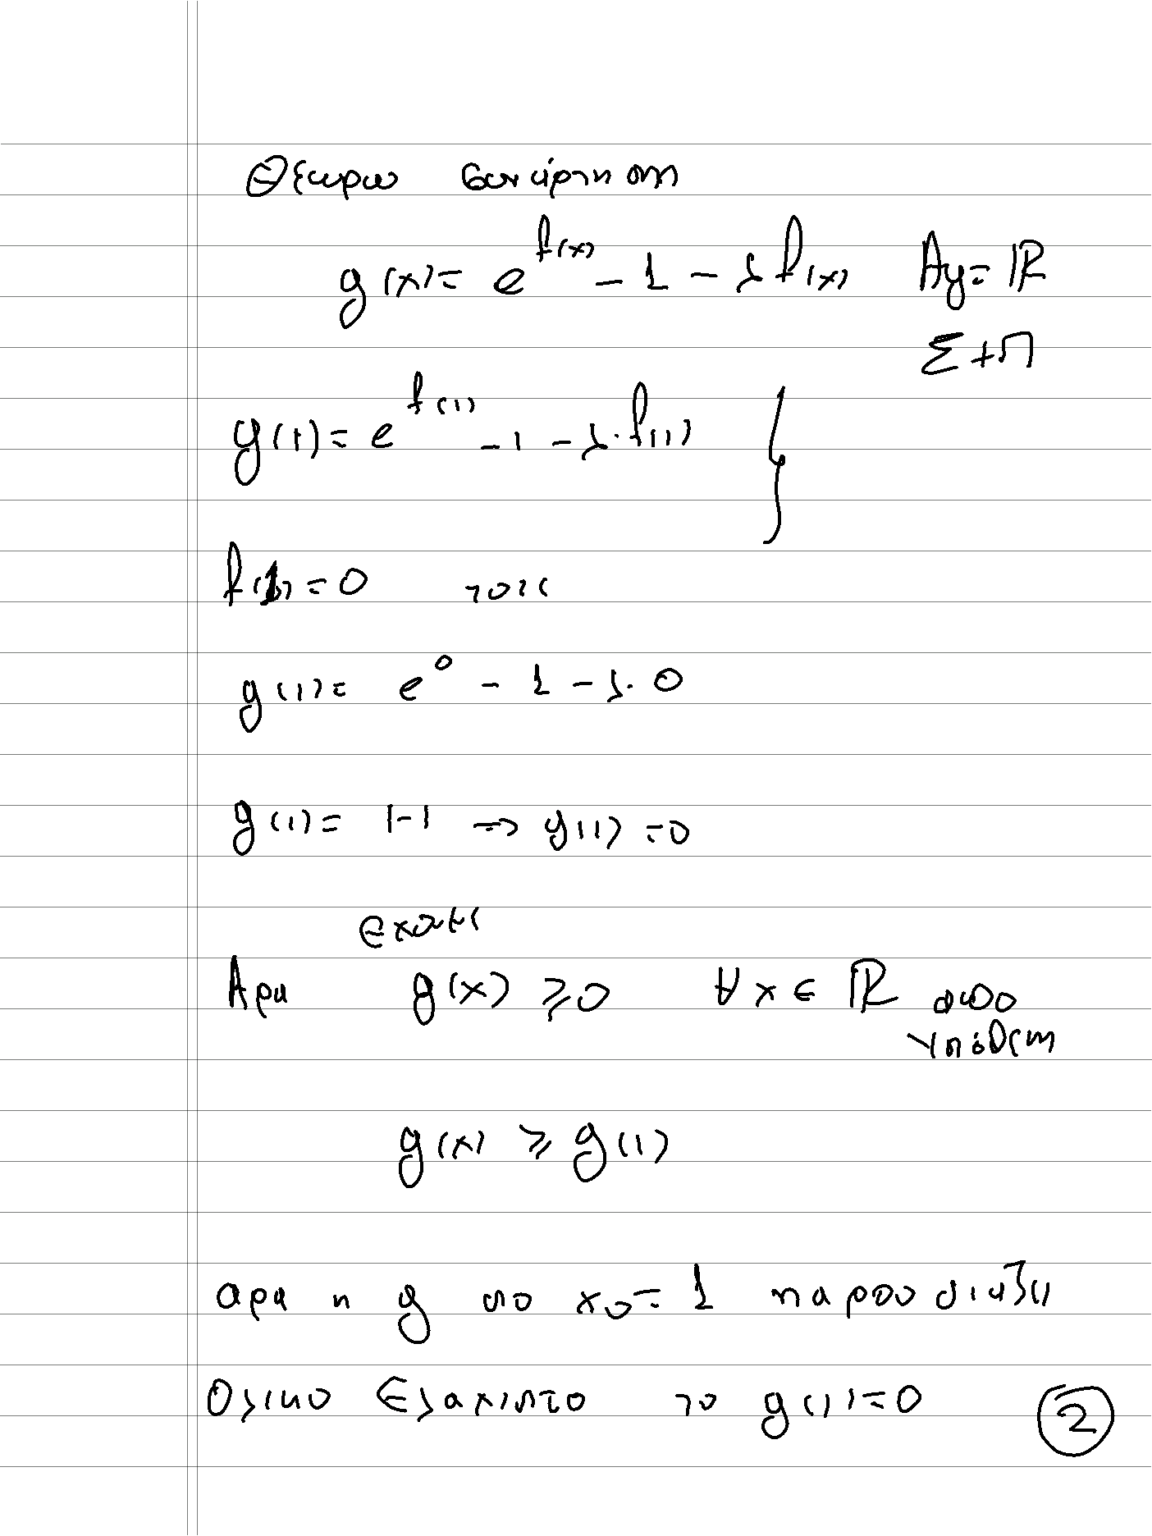 Θεωρω συνάρτηση
g(x) = e^{f(x)} - 1 - λ f(x) Ag = ℝ
Σ+Π
g(1) = e^{f(1)} - 1 - λ·f(1) }
f(1) = 0 τοτε
g(1) = e^0 - 1 - λ·0
g(1) = 1-1 => g(1) = 0
Εχουμε
Αρα g(x) ≥ 0 ∀ x ∈ ℝ απο
υπόθεση
g(x) ≥ g(1)
αρα η g στο x₀ = 1 παρουσιάζει
Ολικο Ελαχιστο το g(1) = 0 2